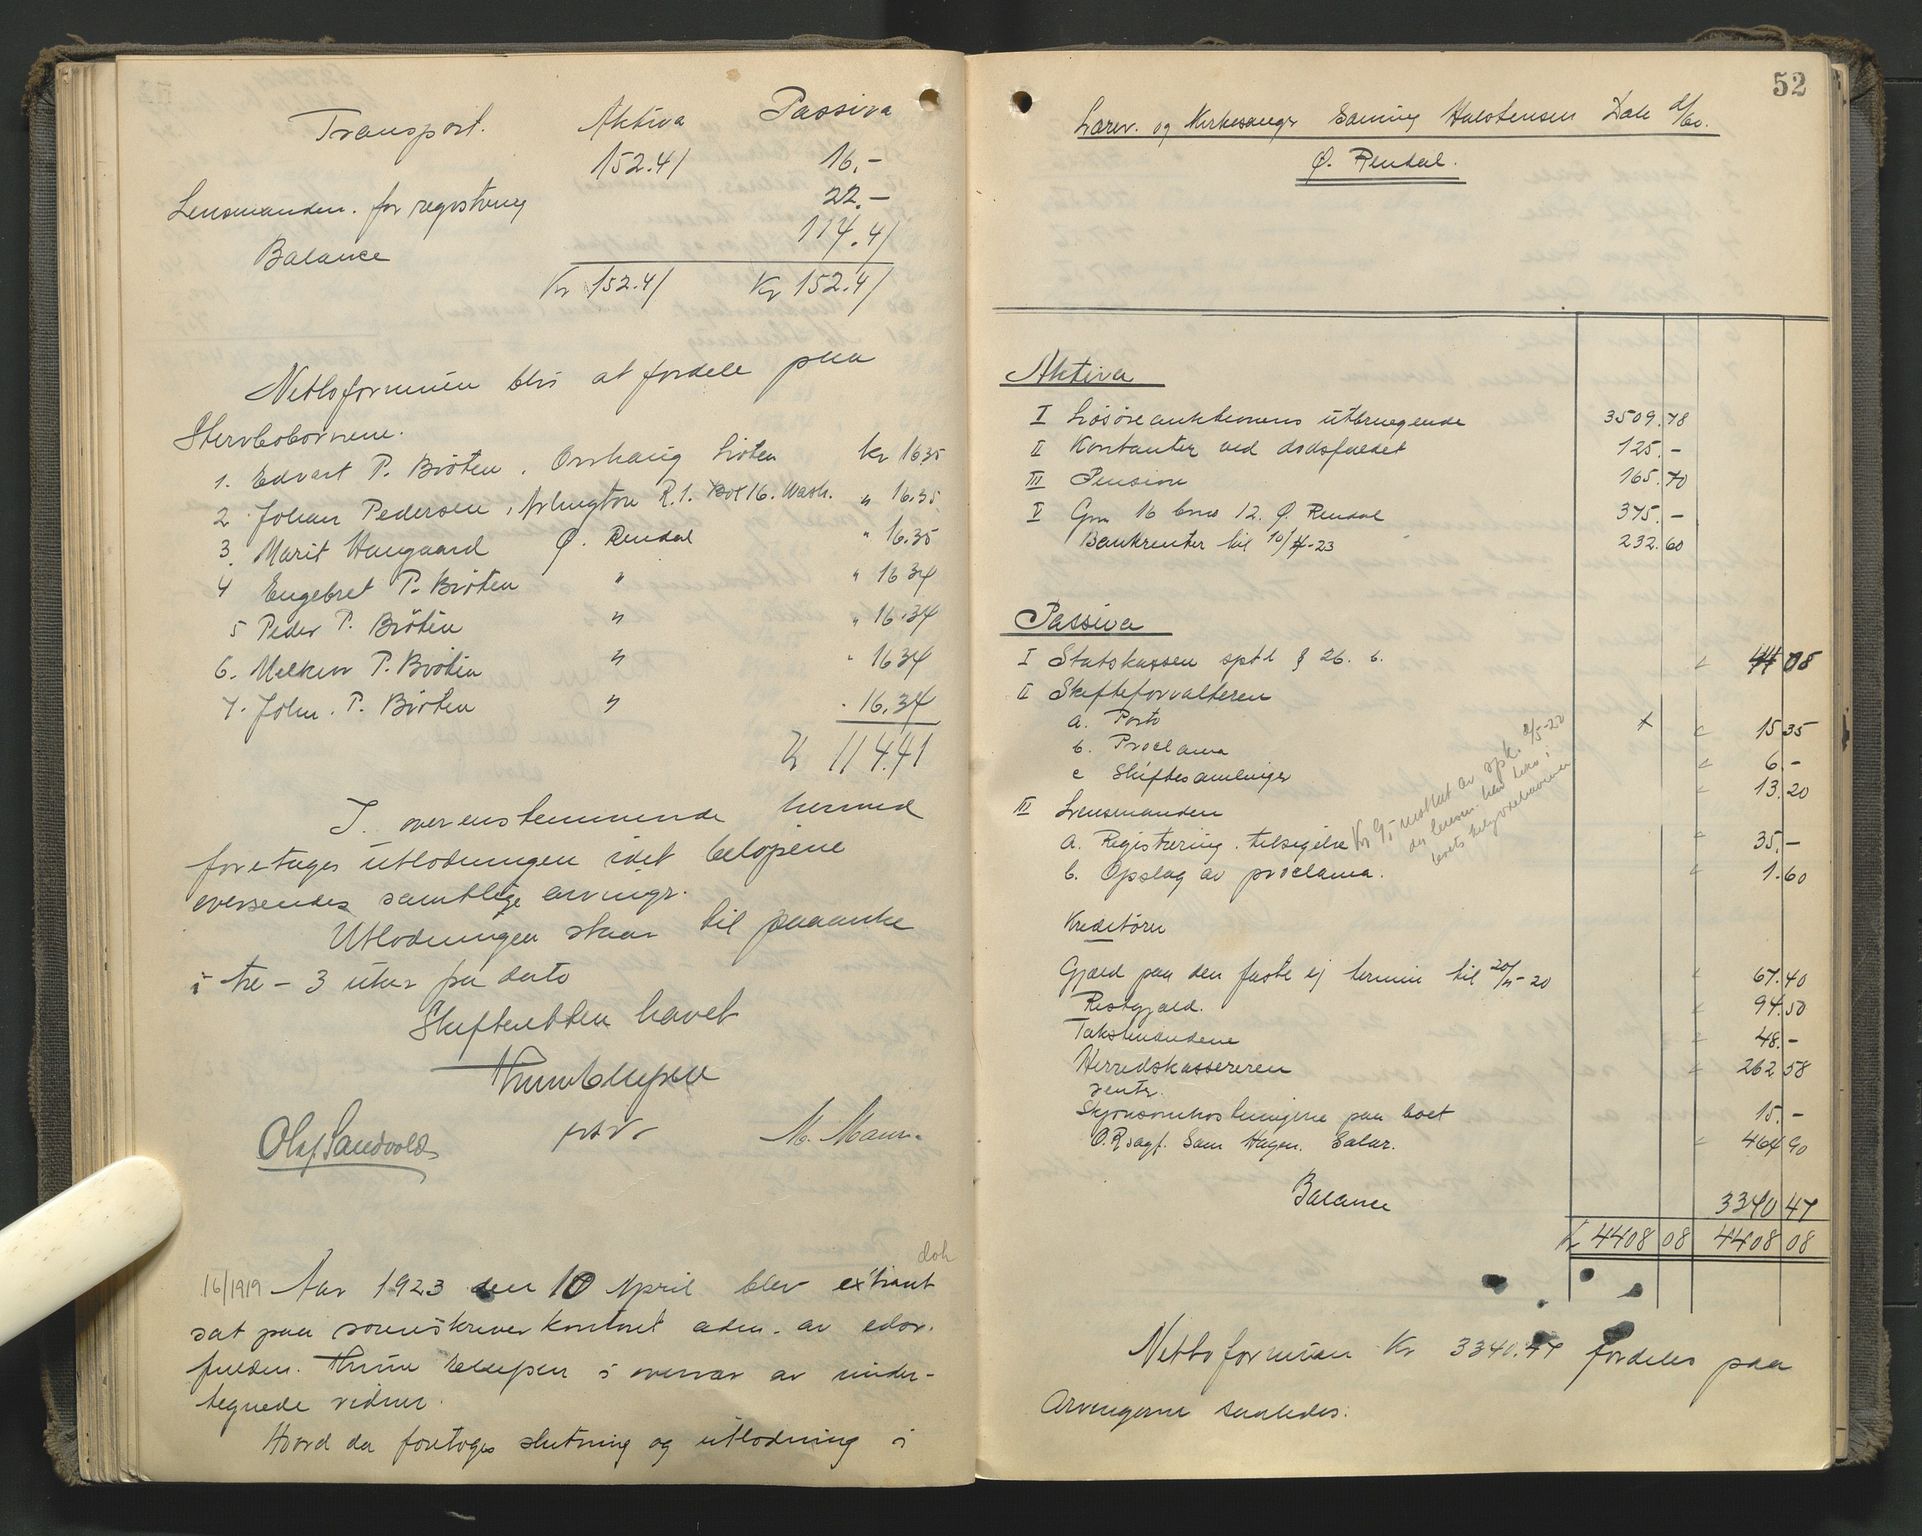 Transport. Aktiva Passiva
152.41 16.-
Lensmanden. for registrering 22.-
Balance 114.41
Kr 152.41 Kr 152.41
Nettoformuen blir at fordele paa
Stervbobørnene.
1. Edvart P. Bröten. Løten Kr 16.35
2 Johan Pedersen, Arlington R.1. Box 16. Wash. " 16.35
3. Marit Haugaard Ø. Rendal " 16.35
4 Engebret P. Bröten " " 16.34
5 Peder P. Bröten " " 16.34
6. Melkior P. Bröten " " 16.34
7. John. P. Bröten " " 16.34
Kr 114.41
I overenstemmende hermed
foretages utlodningen idet beløpene
oversendes samtlige arvinger.
Utlodningen staar til paaanke
i tre - 3 uker fra dato
Skifteretten hævet
Olaf Sandvold M.
dok
16/1919 Aar 1923 den 10 April blev extraret
sat paa sorenskriverkontoret adm. av edsv.
fuldm. i overvær av under-
tegnede vidner.
Hvord da foretoges slutning og utlodning i
52
Lærer og Kirkesanger Halstensen Dale
Ø. Rendal.
Aktiva
I Løsøreauktionens utbringende 3509.78
II Kontanter ved dødsfaldet 125.-
III Pension 165.70
V Gnr 16 bnr 12. Ø. Rendal 375.-
Bankrenter til 10/4-23 232.60
Passiva
I Statskassen sptl § 26. 6. 44 08
II Skifteforvalteren
a. Porto x 15 35
b. Proclama 6.-
c Skiftesamlinger 13.20
III Lensmanden
a. Registrering. tilsigelse 35.-
b. Opslag av proclama. 1.60
Kreditorer
Gjæld paa den faste ej termin til 67.40
Restgjæld. 94.50
Takstmændene 48.-
Herredskassereren 262 58
renter.
Skjønsomkostningerne paa boet 15.-
O.R.sagf. Sam Hagen. Salær. 464 90
Balance 3340 47
Kr 4408 08 4408 08
Nettoformuen Kr 3340.47 fordeles paa
Arvingerne saaledes: